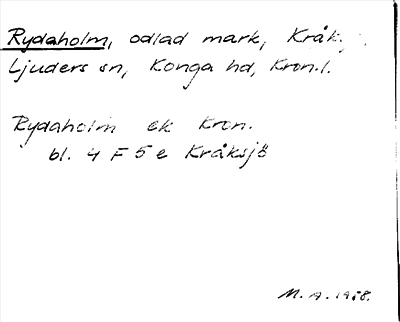 Rydaholm, odlad mark, Kråk
Ljuders sn, Konga hd, Kron.l.
Rydaholm ek Kron.
bl. 4 F 5 e Kråksjö
M. A.